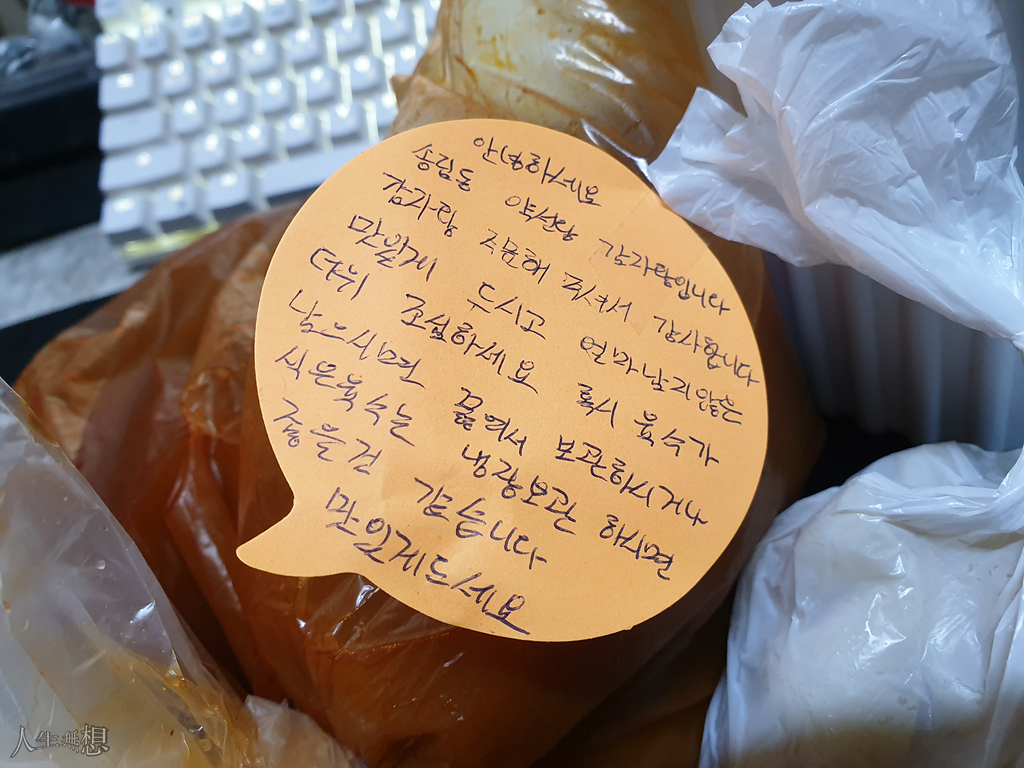 안녕하세요
송림동 약선당 감자랑입니다
감자랑 주문해 주셔서 감사합니다
맛있게 드시고 얼마남지않은
더위 조심하세요 혹시 육수가
남으시면 끓여서 보관하시거나
식은육수는 냉장보관 하시면
좋을것 같습니다
맛있게드세요
人生無想